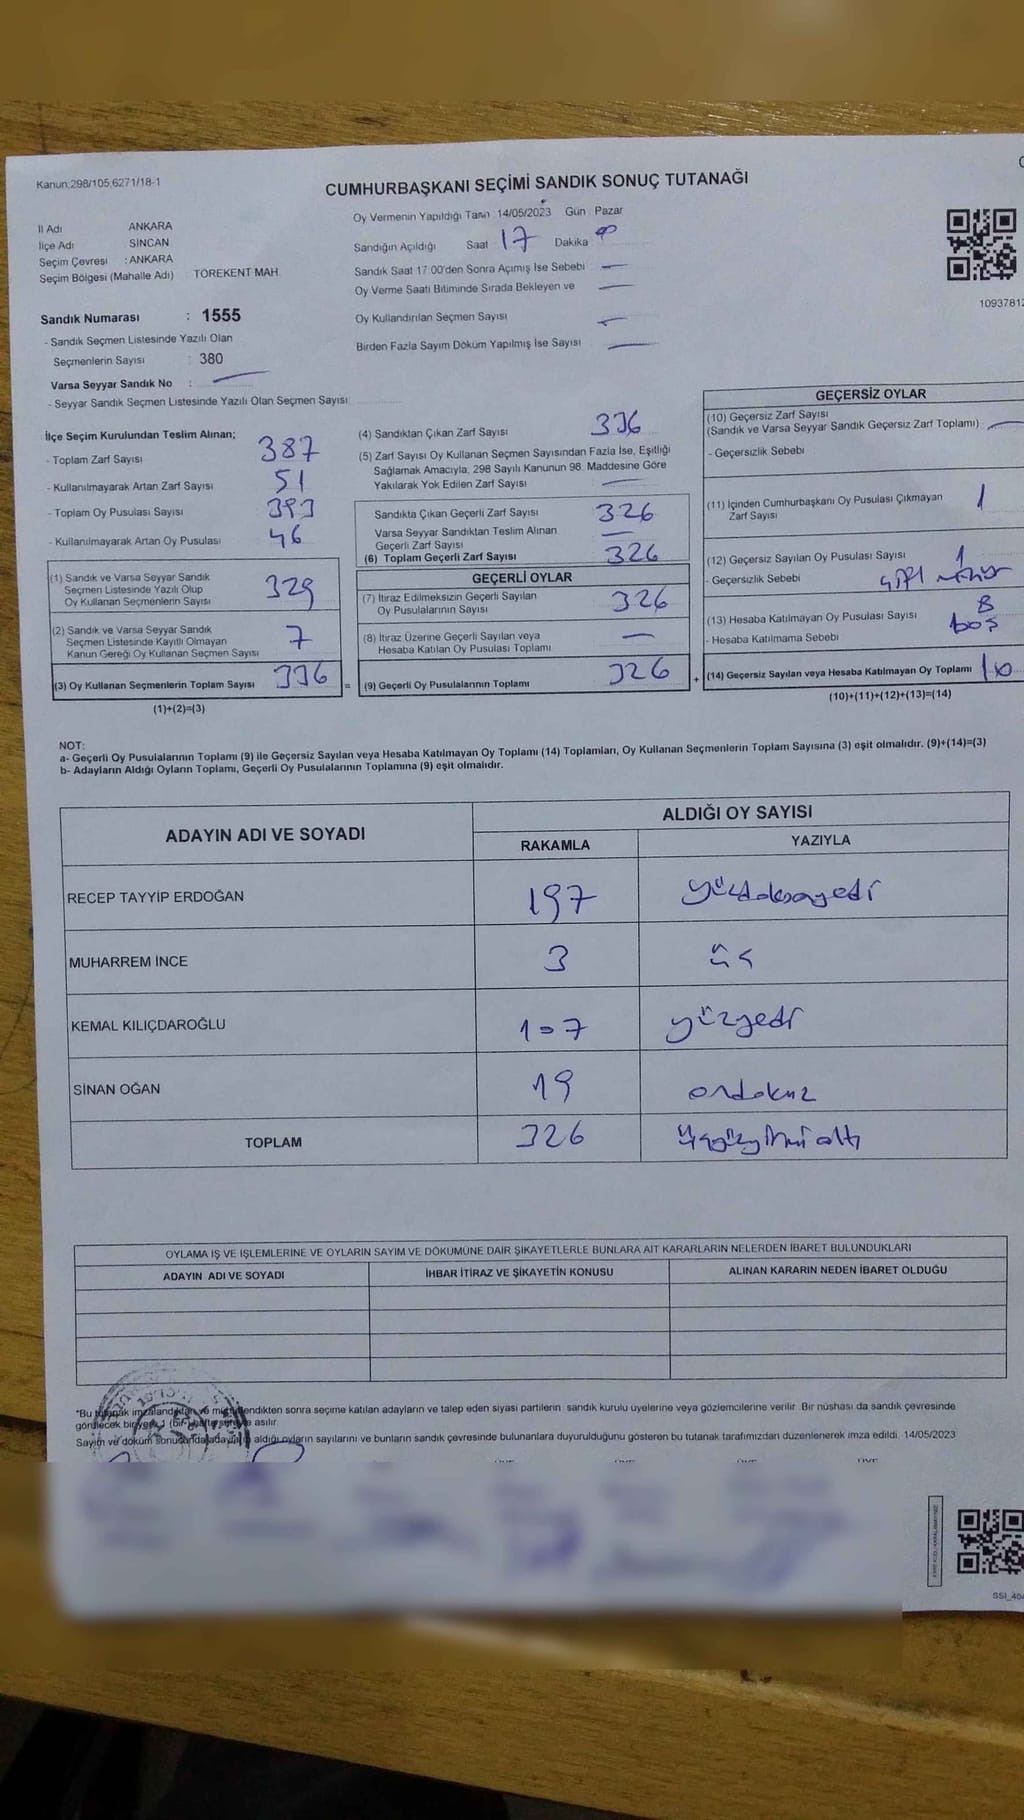 Kanun;298/105,6271/18-1
CUMHURBAŞKANI SEÇİMİ SANDIK SONUÇ TUTANAĞI
İl Adı ANKARA
İlçe Adı SİNCAN
Seçim Çevresi : ANKARA
Seçim Bölgesi (Mahalle Adı) TÖREKENT MAH.
Oy Vermenin Yapıldığı Tarih 14/05/2023 Gün Pazar
Sandığın Açıldığı Saat 17 Dakika
Sandık Saat 17:00'den Sonra Açımış İse Sebebi
Oy Verme Saati Bitiminde Sırada Bekleyen ve
Oy Kullandırılan Seçmen Sayısı
Birden Fazla Sayım Döküm Yapılmış İse Sayısı
1093781
Sandık Numarası : 1555
- Sandık Seçmen Listesinde Yazılı Olan
Seçmenlerin Sayısı : 380
Varsa Seyyar Sandık No :
- Seyyar Sandık Seçmen Listesinde Yazılı Olan Seçmen Sayısı
İlçe Seçim Kurulundan Teslim Alınan;
- Toplam Zarf Sayısı 387
- Kullanılmayarak Artan Zarf Sayısı 51
- Toplam Oy Pusulası Sayısı 393
- Kullanılmayarak Artan Oy Pusulası 46
(1) Sandık ve Varsa Seyyar Sandık
Seçmen Listesinde Yazılı Olup
Oy Kullanan Seçmenlerin Sayısı 329
(2) Sandık ve Varsa Seyyar Sandık
Seçmen Listesinde Kayıtlı Olmayan
Kanun Gereği Oy Kullanan Seçmen Sayısı 7
(3) Oy Kullanan Seçmenlerin Toplam Sayısı 336
(1)+(2)=(3)
(4) Sandıktan Çıkan Zarf Sayısı 336
(5) Zarf Sayısı Oy Kullanan Seçmen Sayısından Fazla İse, Eşitliği
Sağlamak Amacıyla, 298 Sayılı Kanunun 98. Maddesine Göre
Yakılarak Yok Edilen Zarf Sayısı
Sandıkta Çıkan Geçerli Zarf Sayısı 326
Varsa Seyyar Sandıktan Teslim Alınan
Geçerli Zarf Sayısı
(6) Toplam Geçerli Zarf Sayısı 326
GEÇERLİ OYLAR
(7) İtiraz Edilmeksizin Geçerli Sayılan
Oy Pusulalarının Sayısı 326
(8) İtiraz Üzerine Geçerli Sayılan veya
Hesaba Katılan Oy Pusulası Toplamı
= (9) Geçerli Oy Pusulalarının Toplamı 326
GEÇERSİZ OYLAR
(10) Geçersiz Zarf Sayısı
(Sandık ve Varsa Seyyar Sandık Geçersiz Zarf Toplamı)
- Geçersizlik Sebebi
(11) İçinden Cumhurbaşkanı Oy Pusulası Çıkmayan
Zarf Sayısı 1
(12) Geçersiz Sayılan Oy Pusulası Sayısı 1
- Geçersizlik Sebebi çift mühür
(13) Hesaba Katılmayan Oy Pusulası Sayısı 8
- Hesaba Katılmama Sebebi boş
+ (14) Geçersiz Sayılan veya Hesaba Katılmayan Oy Toplamı 10
(10)+(11)+(12)+(13)=(14)
NOT:
a- Geçerli Oy Pusulalarının Toplamı (9) ile Geçersiz Sayılan veya Hesaba Katılmayan Oy Toplamı (14) Toplamları, Oy Kullanan Seçmenlerin Toplam Sayısına (3) eşit olmalıdır. (9)+(14)=(3)
b- Adayların Aldığı Oyların Toplamı, Geçerli Oy Pusulalarının Toplamına (9) eşit olmalıdır.
ADAYIN ADI VE SOYADI ALDIĞI OY SAYISI
RAKAMLA YAZIYLA
RECEP TAYYİP ERDOĞAN 197 yüzdoksanyedi
MUHARREM İNCE 3 üç
KEMAL KILIÇDAROĞLU 107 yüzyedi
SİNAN OĞAN 19 ondokuz
TOPLAM 326 üçyüzyirmialtı
OYLAMA İŞ VE İŞLEMLERİNE VE OYLARIN SAYIM VE DÖKÜMÜNE DAİR ŞİKAYETLERLE BUNLARA AİT KARARLARIN NELERDEN İBARET BULUNDUKLARI
ADAYIN ADI VE SOYADI İHBAR İTİRAZ VE ŞİKAYETİN KONUSU ALINAN KARARIN NEDEN İBARET OLDUĞU
*Bu tutanak imzalandıktan ve mühürlendikten sonra seçime katılan adayların ve talep eden siyasi partilerin sandık kurulu üyelerine veya gözlemcilerine verilir. Bir nüshası da sandık çevresinde
görülecek bir yere 1 (bir) hafta süreyle asılır.
Sayım ve döküm sonucunda adayların aldığı oyların sayılarını ve bunların sandık çevresinde bulunanlara duyurulduğunu gösteren bu tutanak tarafımızdan düzenlenerek imza edildi. 14/05/2023